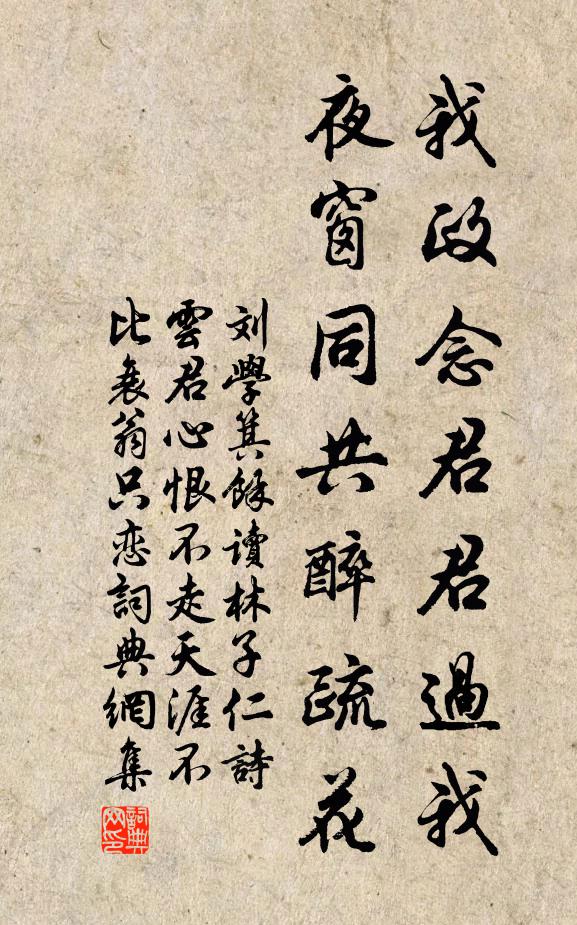 我政念君君過我
夜窗同共醉疏花
刘學箕餘讀林子仁詩
雲君心恨不走天涯不
比衰翁只恋詞典網集
詞典网印